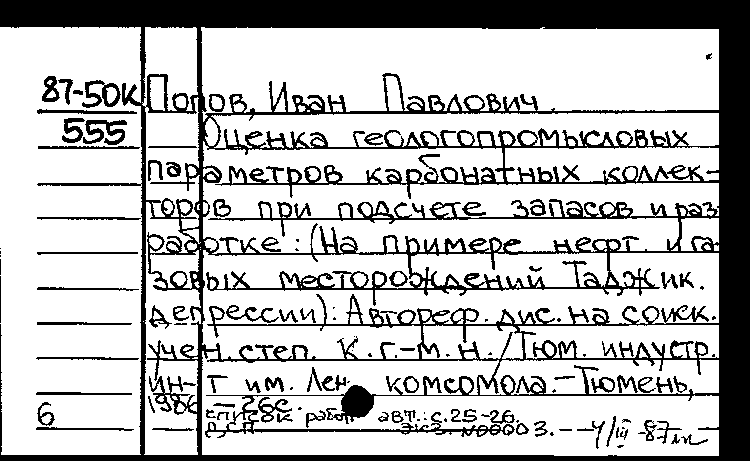 87-50К Попов, Иван Павлович.
555 Оценка геологопромысловых
параметров карбонатных коллек-
торов при подсчете запасов и раз-
работке: (На примере нефт. и га-
зовых месторождений Таджик.
депрессии): Автореф. дис. на соиск.
учен. степ. к.г.-м.н. / Тюм. индустр.
ин-т им. Лен. комсомола. - Тюмень,
1986. - 26с.
6 Список работ авт.: с. 25-26.
ДСП Экз. N00003. - 4/III-87